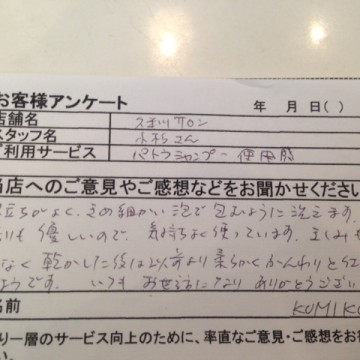 お客様アンケート 年 月 日( )
店舗名 サロン
スタッフ名 小杉さん
ご利用サービス パトラシャンプー使用感
当店へのご意見やご感想などをお聞かせください
立ちがよく、きめ細かい泡で包むように洗えます。
りも優しいので、気持ちよく使っています。
なく乾かした後は以前より柔らかくふんわりと
ようです。いつもお世話になりありがとうござい
名前 KUMIKO
り一層のサービス向上のために、率直なご意見・ご感想をお